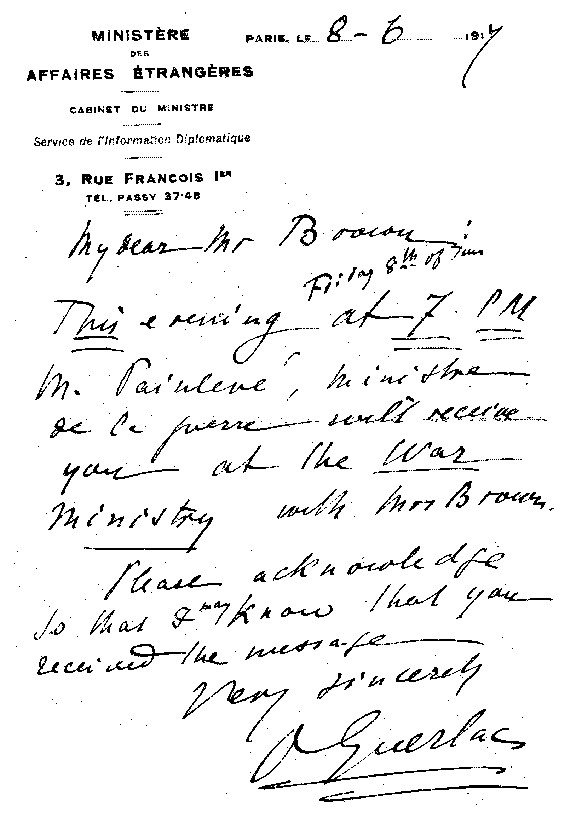 MINISTÈRE
DES
AFFAIRES ÉTRANGÈRES
CABINET DU MINISTRE
Service de l'Information Diplomatique
3, RUE FRANCOIS Iᴱᴿ
TÉL. PASSY 37-48
PARIS, LE 8-6 1917
My dear Mr Brown
Friday 8th of June
This evening at 7. PM
M. Painlevé, ministre
de la guerre will receive
you at the War
Ministry with Mrs Brown.
Please acknowledge
So that I may know that you
received the message
Very sincerely
O Guerlac